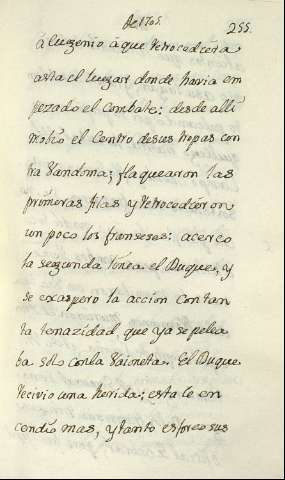 de 1705. 255.
á Eugenio á que retrocediera
asta el lugar donde havia em
pezado el combate: desde alli
movio el Centro desus tropas con
tra Vandoma; flaquearon las
primeras filas y retrocedieron
un poco los franseses: acerco
la segunda linea el Duque, y
se exaspero la accion con tan
ta tenazidad, que ya se pelea
ba solo conla Vaioneta. El Duque
recivio una herida; esta le en
cendio mas, y tanto esforco sus